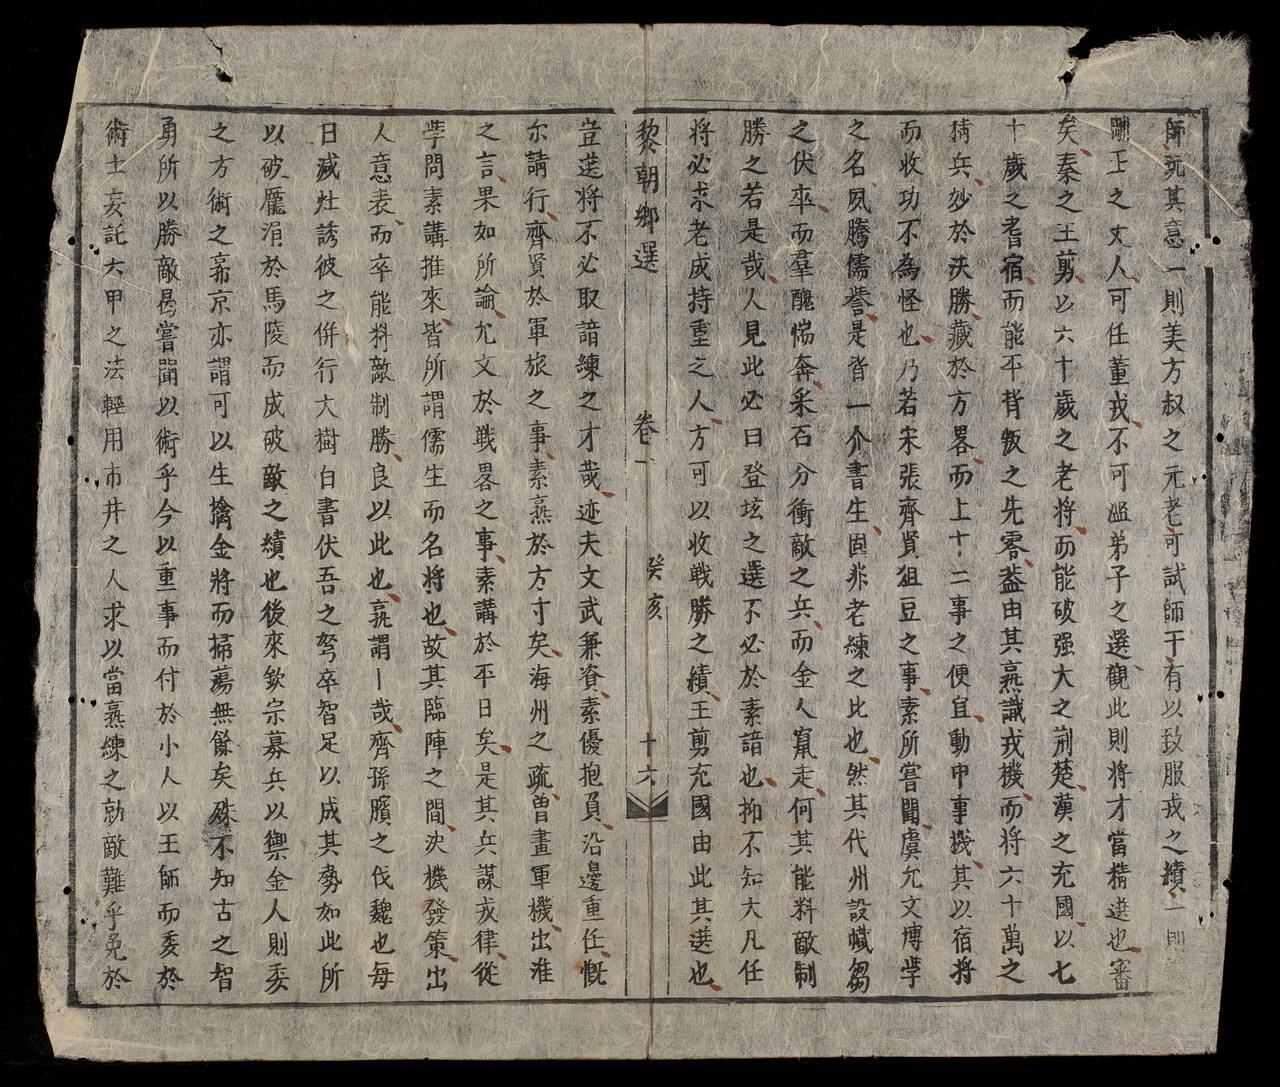 師玩其意一則美方叔之元老可試師干有以致服戎之績一則
剛王之丈人可任董戎不可溢弟子之選觀此則將才當精选也審
矣秦之王剪以六十歲之老将而能破强大之荆楚漢之充國以七
十歲之耆宿而能平背叛之先零蓋由其熹識戎機而将六十萬之
猜兵妙於决勝藏於方畧而上十二事之便宜動中事機其以宿将
而收功不為怪也乃若宋張齊賢狙豆之事素所嘗聞虞允文博学
之名夙騰儒譽是皆一介書生固非老練之比也然其代州設幟芻
之伏卒而羣醜惴奔采石分衝敵之兵而金人竄走何其能料敵制
勝之若是哉人見此必曰登坛之選不必於素諳也抑不知大凡任
将必求老成持重之人方可以收戰勝之績王剪充國由此其选也
黎朝鄉選 卷一 癸亥 十六
豈选将不必取諳練之才哉迹夫文武兼資素優抱負沿邊重任慨
尔請行齊賢於軍旅之事素熹於方寸矣海州之疏曽畫軍機出淮
之言果如所論允文於戰畧之事素講於平日矣是其兵謀戎律從
学問素講推來皆所謂儒生而名將也故其臨陣之間決機發策出
人意表而卒能料敵制勝良以此也孰謂丨哉齊孫臏之伐魏也每
日减灶誘彼之併行大樹白書伏吾之弩卒智足以成其勢如此所
以破龐涓於馬陵而成破敵之績也後來欽宗募兵以禦金人則委
之方術之郭京亦謂可以生擒金將而掃蕩無餘矣殊不知古之智
勇所以勝敵曷嘗聞以術乎今以重事而付於小人以王師而委於
術士妄託六甲之法輕用市井之人求以當熹練之勍敵難乎免於